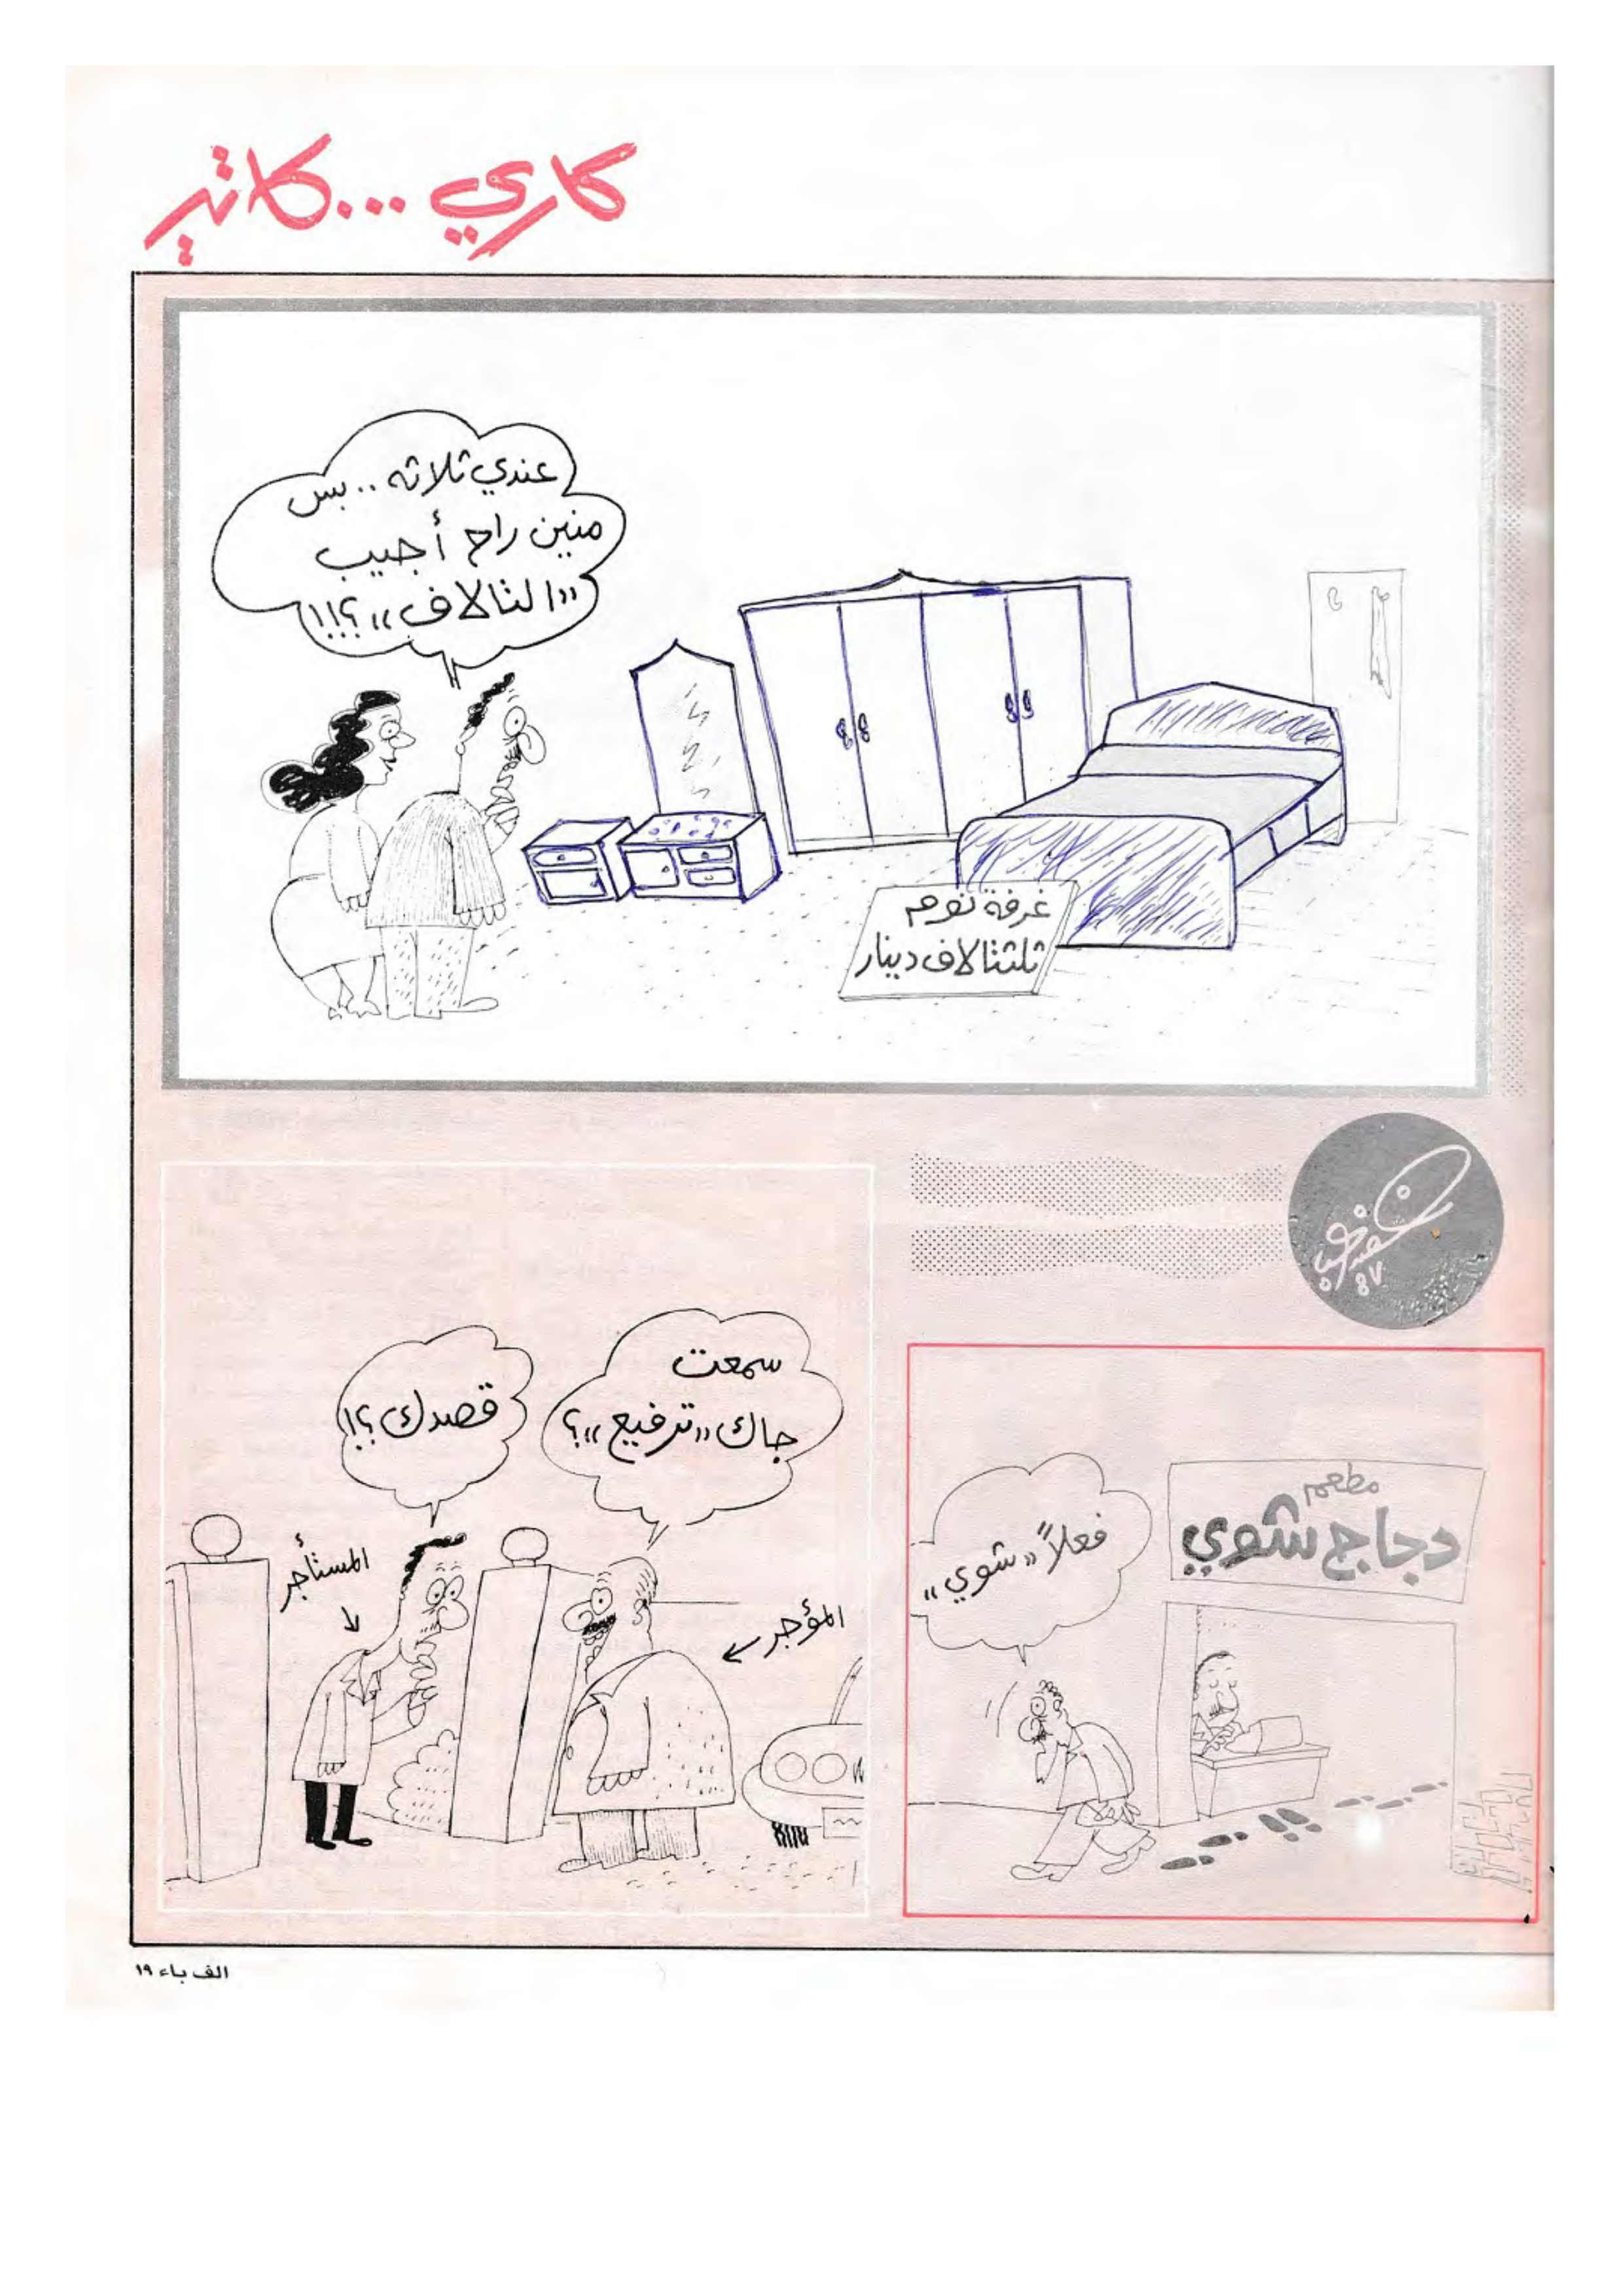 كاري ...كاتير
عندي ثلاثه .. بس
منين راح أجيب
«الثالاف»؟!!
غرفة نوم
ثلثتالاف دينار
٨٧
سمعت
جاك «ترفيع»؟
قصدك؟!
المستأجر
المؤجر
مطعم
دجاج شوي
فعلاً «شوي»
الف باء ١٩